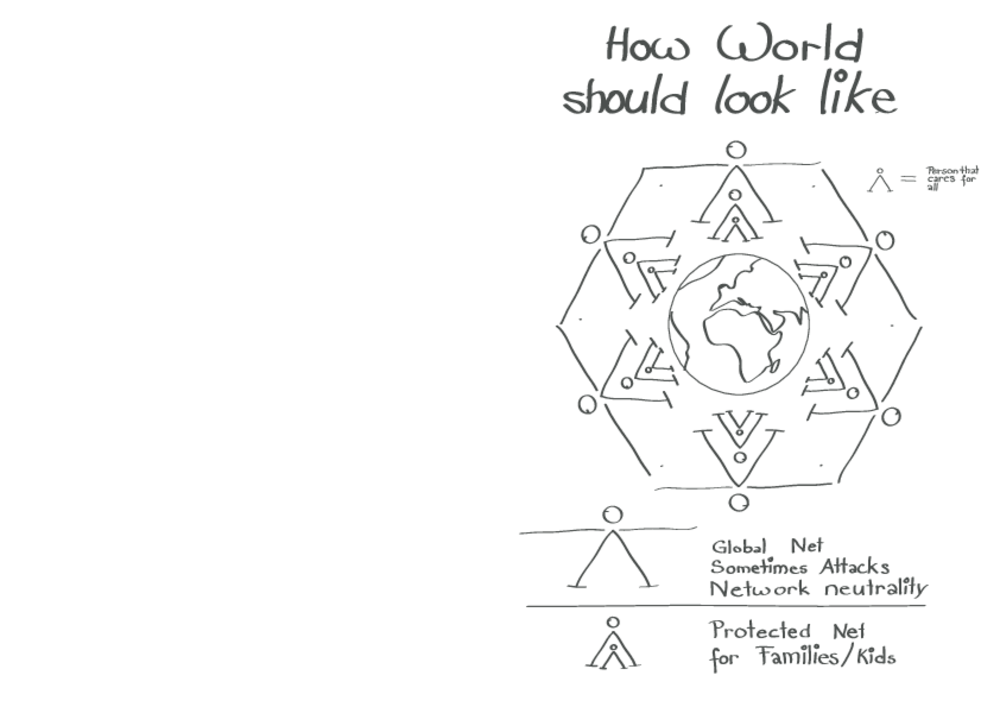 How World
should look like
= Person that
cares for
all
Global Net
Sometimes Attacks
Network neutrality
Protected Net
for Families/Kids